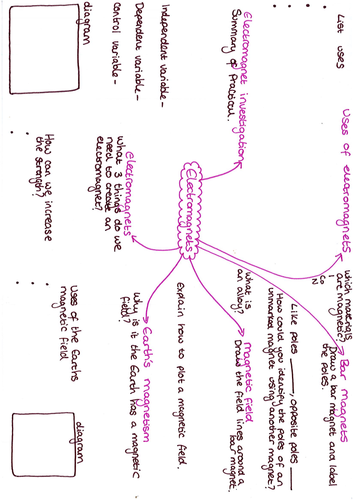 Uses of electromagnets
List uses
Bar Magnets
Draw a bar magnet and label
the poles.
Like poles ____, opposite poles ____
How could you identify the poles of a
unmarked magnet using another magnet?
which materials
are magnetic?
what is
an alloy?
Magnetic field
Draw the field lines around a
bar magnet.
Explain how to plot a magnetic field.
Electromagnet investigation
Summary of Practical.
Independent variable -
Dependent variable -
Control variable -
diagram
Electromagnets
Electromagnets
What 3 things do we
need to create an
electromagnet?
How can we increase
the strength?
Earth's magnetism
Why is it the Earth has a magnetic
field?
Uses of the Earths
magnetic field
diagram